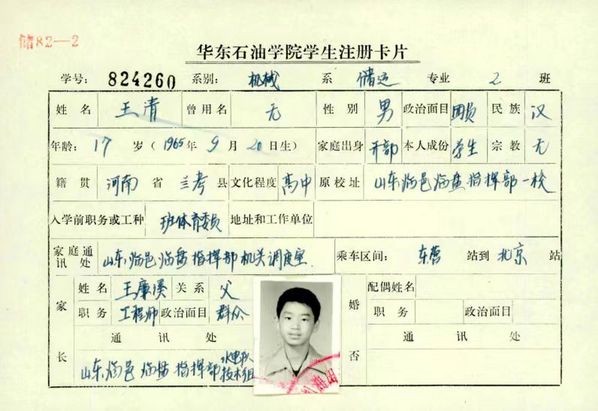 储82-2
华东石油学院学生注册卡片
学号: 824260 系别: 机械 系 储运 专业 2 班
姓名 王清 曾用名 无 性别 男 政治面目 团员 民族 汉
年龄: 17 岁 (1965 年 9 月 20 日生) 家庭出身 干部 本人成份 学生 宗教 无
籍贯 河南 省 兰考 县 文化程度 高中 原校址 山东临邑临盘指挥部一校
入学前职务或工种 班体育委员 地址和工作单位
家庭通讯处 山东临邑临盘指挥部机关调度室. 乘车区间: 东营 站到 北京 站
家长 姓名 王廉溪 关系 父 婚否 配偶姓名
职务 工程师 政治面目 群众 职务 政治面目
通讯处 通讯处
山东临邑临盘指挥部水电队技术组